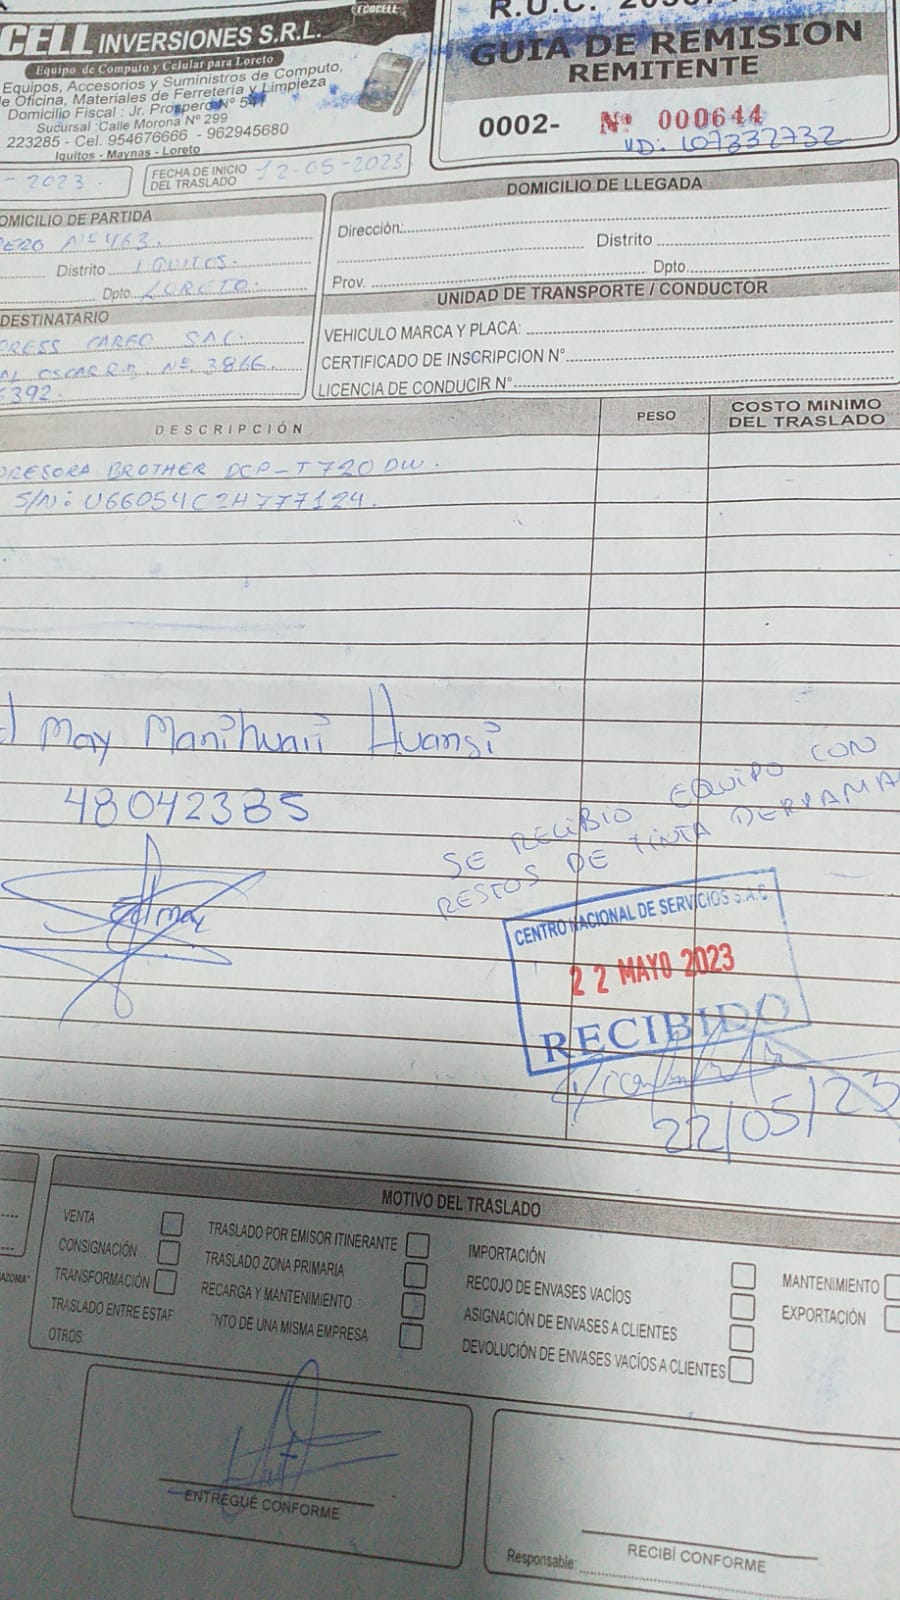 ECOCELL
CELL INVERSIONES S.R.L.
Equipo de Computo y Celular para Loreto
Equipos, Accesorios y Suministros de Computo,
e Oficina, Materiales de Ferretería y Limpieza
Domicilio Fiscal : Jr. Prospero Nº 541
Sucursal :Calle Morona Nº 299
223285 - Cel. 954676666 - 962945680
Iquitos - Maynas - Loreto
R.U.C.
GUIA DE REMISION
REMITENTE
0002- Nº 000644
VD: 607332732
- 2023.
FECHA DE INICIO
DEL TRASLADO 12-05-2023
OMICILIO DE PARTIDA
PERO Nº 463.
Distrito IQUITOS.
Dpto. LORETO.
DOMICILIO DE LLEGADA
Dirección:
Distrito
Prov. Dpto.
DESTINATARIO
PRESS CARGO SAC.
AL OSCAR R.B. Nº 3866.
392.
UNIDAD DE TRANSPORTE / CONDUCTOR
VEHICULO MARCA Y PLACA:
CERTIFICADO DE INSCRIPCION Nº
LICENCIA DE CONDUCIR Nº
DESCRIPCIÓN PESO COSTO MINIMO
DEL TRASLADO
PRESORA BROTHER DCP-T720DW.
S/N: U66054C2H777124.
May Manihuari Huansi
48042385
Edmay
SE RECIBIO EQUIPO CON
RESTOS DE TINTA DERRAMA
CENTRO NACIONAL DE SERVICIOS S.A.C
22 MAYO 2023
RECIBIDO
22/05/23
MOTIVO DEL TRASLADO
VENTA
CONSIGNACIÓN
TRANSFORMACIÓN
TRASLADO ENTRE ESTAB
OTROS
TRASLADO POR EMISOR ITINERANTE
TRASLADO ZONA PRIMARIA
RECARGA Y MANTENIMIENTO
NTO DE UNA MISMA EMPRESA
IMPORTACIÓN
RECOJO DE ENVASES VACÍOS
ASIGNACIÓN DE ENVASES A CLIENTES
DEVOLUCIÓN DE ENVASES VACÍOS A CLIENTES
MANTENIMIENTO
EXPORTACIÓN
AZONIA"
ENTREGUÉ CONFORME
RECIBÍ CONFORME
Responsable: